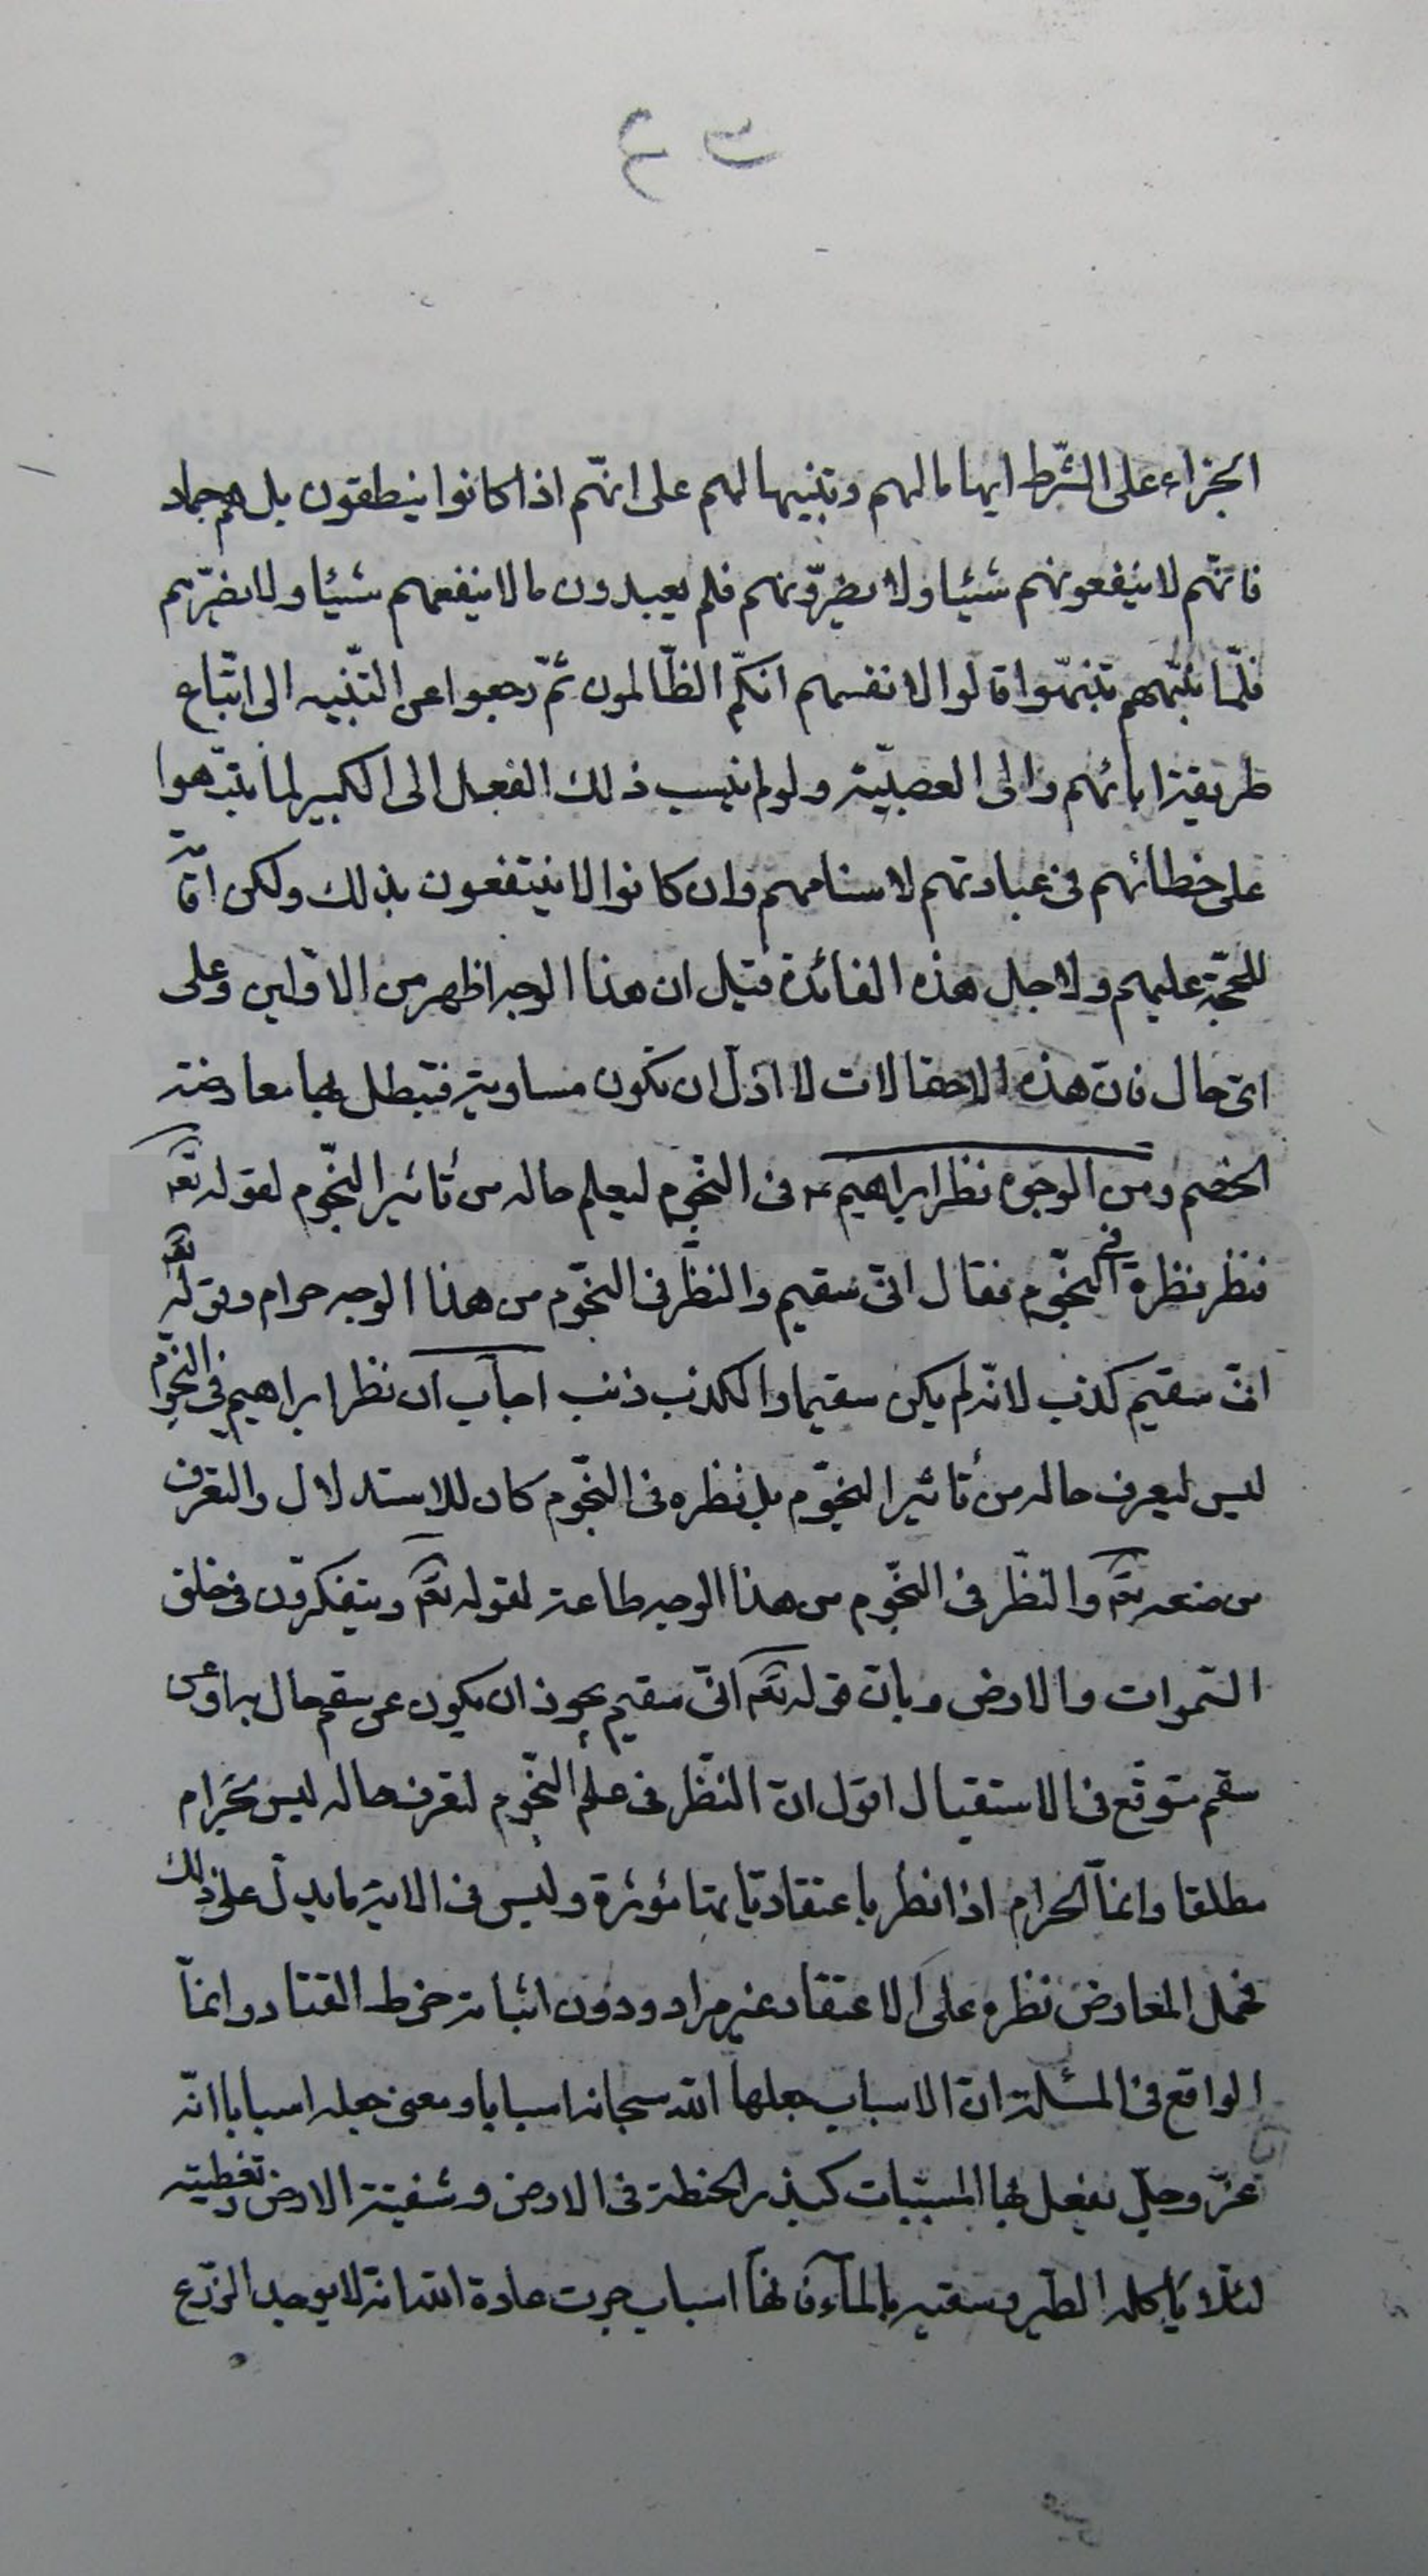 الجزاء على الشّرط ايهاما لهم وتنبيها لهم على انّهم اذا كانوا ينطقون بل هم جماد
فانّهم لا ينفعونهم شيئا ولا يضرّونهم فلم يعبدون ما لا ينفعهم شيئا ولا يضرّهم
فلمّا نبّههم تنبّهوا قالوا لانفسهم انكّم الظّالمون ثمّ رجعوا عن التّنبيه الى اتّباع
طريقة ابائهم والى العصبيّة ولو لم ينسب ذلك الفعل الى الكبير لما تنبّهوا
على خطائهم فى عبادتهم لاسنامهم وان كانوا لا ينتفعون بذلك ولكن اقامة
للحجّة عليهم ولاجل هذه الفائدة قيل ان هذا الوجه اظهر من الاوّلين وعلى
اىّ حال فانّ هذه الاحتمالات لا اقلّ ان تكون مساوية فتبطل بها معارضة
الخصم ومن الوجوه نظر ابراهيم ع فى النّجوم ليعلم حاله من تأثير النّجوم لقوله تع
فنظر نظرة فى النّجوم فقال انّى سقيم والنّظر فى النّجوم من هذا الوجه حرام وقوله تع
انّى سقيم كذب لانّه لم يكن سقيما والكذب ذنب اجاب ان نظر ابراهيم فى النّجوم
ليس ليعرف حاله من تأثير النّجوم بل نظره فى النّجوم كان للاستدلال والتعرف
من صنعه تع والنّظر فى النّجوم من هذا الوجه طاعة لقوله تع ويتفكرّون فى خلق
السّموات والارض وبانّ قوله تع انّى سقيم يجوز ان يكون عن سقم حال به او عن
سقم متوقّع فى الاستقبال اقول انّ النّظر فى علم النّجوم لتعرف حاله ليس بحرام
مطلقا وانمّا الحرام اذا نظر باعتقاد انها مؤثرة وليس فى الاية ما يدلّ على ذلك
فحمل المعارض نظره على الاعتقاد غير مراد ودون اثباته خرط القتاد وانمّا
الواقع فى المسئلة انّ الاسباب جعلها الله سبحانه اسبابا ومعنى جعله اسبابا انّه
عزّ وجلّ يفعل بها المسبّبات كبذر الحنطة فى الارض و الارض وتغطيته
لئلّا يأكله الطّير وسقيه بالمآء فانهّا اسباب جرت عادة الله انّه لا يوجد الزّرع